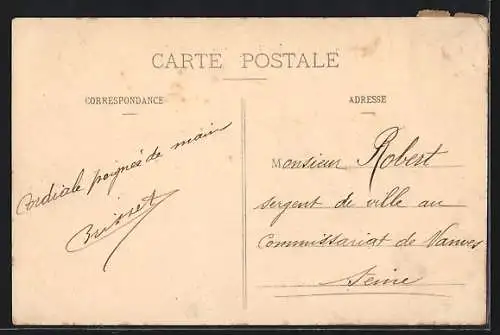 CARTE POSTALE
CORRESPONDANCE
Cordiale poignée de main
Buisset
ADRESSE
Monsieur Robert
sergent de ville au
Commissariat de Vanves
Seine